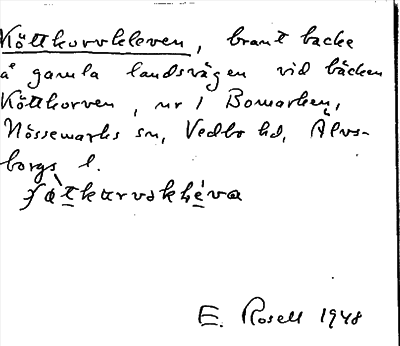 Köttkorvkleven, brant backe
å gamla landsvägen vid bäcken
Köttkorven, nr 1 Bomarken,
Nössemarks sn, Vedbo hd, Älvs-
borgs l.
E. Rosell 1948